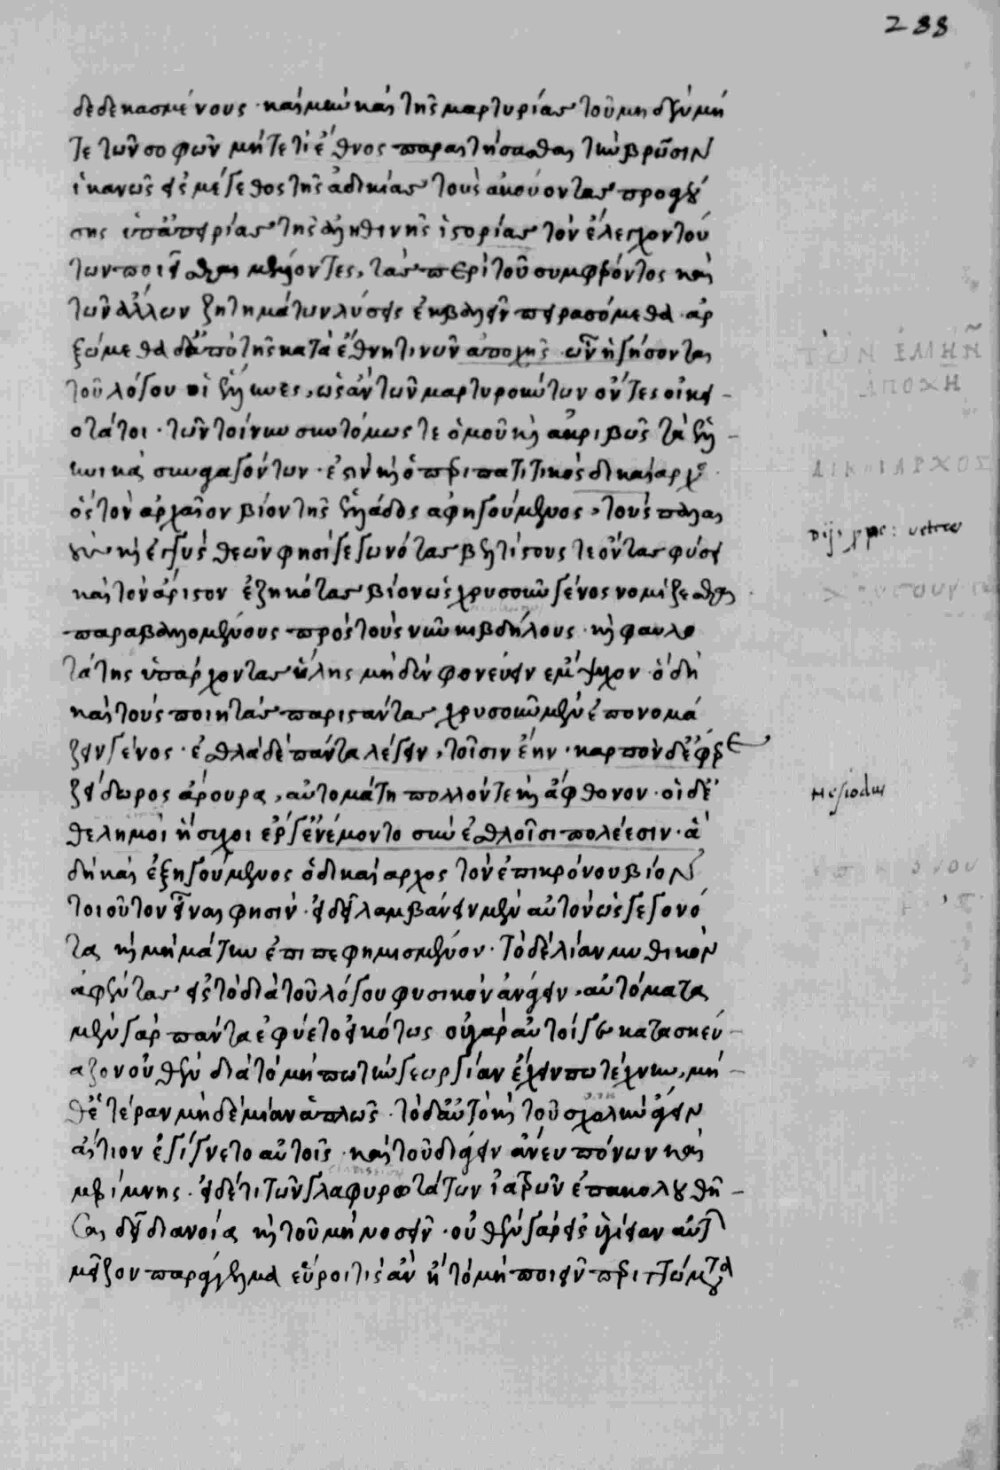 288
δεδικασμένους · καὶ μὴν καὶ τῆς μαρτυρίας τοῦ μηδένα μή
τε τῶν σοφῶν μήτε τι ἔθνος παραιτήσασθαι τὴν βρῶσιν
ἱκανῶς εἰς μέγεθος τῆς ἀδικίας τοὺς ἀκούοντας προαγού
σης ὑπ' ἀπειρίας τῆς ἀληθινῆς ἱστορίας τὸν ἔλεγχον τού
των ποιεῖσθαι μέλλοντες, τὰς περὶ τοῦ συμφέροντος καὶ
τῶν ἄλλων ζητημάτων λύσεις ἐκβαλεῖν πειρασόμεθα · ἀρ
ξώμεθα δ' ἀπὸ τῆς κατὰ ἔθνη τινῶν ἀποχῆς ὧν ἡγήσονται
τοῦ λόγου οἱ ἕλληνες, ὡς ἂν τῶν μαρτυρούντων ὄντες οἰκει
ότατοι · τῶν τοίνυν συντόμως τε ὁμοῦ καὶ ἀκριβῶς τὰ ἑλλη
νικὰ συναγαγόντων · ἐστὶν καὶ ὁ περιπατητικὸς δικαίαρχος
ὃς τὸν ἀρχαῖον βίον τῆς ἑλλάδος ἀφηγούμενος, τοὺς παλαι
οὺς καὶ ἐγγὺς θεῶν φησὶ γεγονότας βελτίστους τε ὄντας φύσει
καὶ τὸν ἄριστον ἐζηκότας βίον ὡς χρυσοῦν γένος νομίζεσθαι
παραβαλλομένους πρὸς τοὺς νῦν κιβδήλου · καὶ φαυλο
τάτης ὑπάρχοντας ὕλης μηδὲν φονεύειν ἔμψυχον · ὃ δὴ
καὶ τοὺς ποιητὰς παριστάντας χρυσοῦν μὲν ἐπονομά
ζειν γένος · ἐσθλὰ δὲ πάντα λέγειν, τοῖσιν ἔην · καρπὸν δ' ἔφερε
ζείδωρος ἄρουρα, αὐτομάτη πολλόν τε καὶ ἄφθονον · οἱ δ' ἐ
θελημοὶ ἥσυχοι ἔργ' ἐνέμοντο σὺν ἐσθλοῖσι πολέεσιν · ἃ
δὴ καὶ ἐξηγούμενος ὁ δικαίαρχος τὸν ἐπὶ κρόνου βίον
τοιοῦτον εἶναι φησίν · εἰ δεῖ λαμβάνειν μὲν αὐτὸν ὡς γεγονό
τα καὶ μὴ μάτην ἐπιπεφημισμένον · τὸ δὲ λίαν μυθικὸν
ἀφέντας εἰς τὸ διὰ τοῦ λόγου φυσικὸν ἀνάγειν, αὐτόματα
μὲν γὰρ πάντα ἐφύετο εἰκότως οὐ γὰρ αὐτοί γε κατεσκεύ
αζον οὐθὲν διὰ τὸ μήπω τὴν γεωργίαν ἔχειν πω τέχνην, μή
θ' ἑτέραν μηδεμίαν ἁπλῶς · τὸ δ' αὐτὸ καὶ τοῦ σχολὴν ἄγειν
αἴτιον ἐγίγνετο αὐτοῖς · καὶ τοῦ διάγειν ἄνευ πόνων καὶ
μερίμνης · εἰ δὲ τῇ τῶν γλαφυρωτάτων ἰατρῶν ἐπακολουθῆ
σαι δεῖ διανοίᾳ καὶ τοῦ μὴ νοσεῖν · οὐθὲν γὰρ εἰς ὑγίειαν αὐτῶν
μεῖζον παράγγελμα εὕροι τις ἂν ἢ τὸ μὴ ποιεῖν περιττώματα
Hesiodus